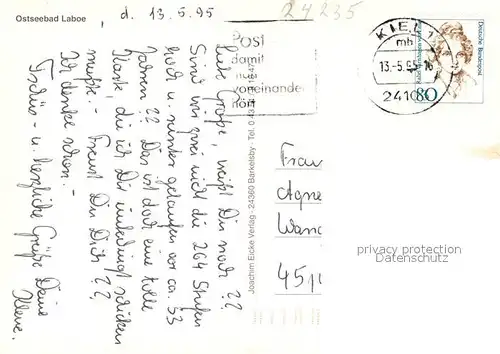 Ostseebad Laboe
, d. 13.5.95
24235
Post
damit
wir
voneinander
hört
KIEL 1
mb
13.-5.95-16
24100
80
Deutsche Bundespost
Liebe Große, weißt Du noch ??
Sind wir zwei nicht die 264 Stufen
hoch u. runter gelaufen vor ca. 53
Jahren ?? Das ist doch eine tolle
Karte, die ich Dir unbedingt schicken
mußte. - Freust Du Dich ??
Ich denke schon. -
Tschüs - u. herzliche Grüße Deine
Kleine.
Joachim Ecke Verlag - 24360 Barkelsby - Tel. 0 43
Frau
Agne
Wan
45
privacy protection
Datenschutz